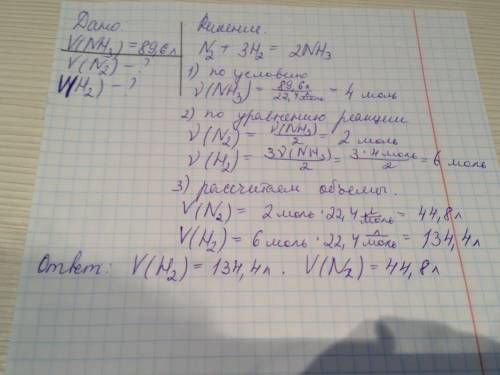 Дано
V(NH₃) = 89,6 л
V(N₂) - ?
V(H₂) - ?
Решение.
N₂ + 3H₂ = 2NH₃
1) по условию
ν(NH₃) = 89,6 л / 22,4 л/моль = 4 моль
2) по уравнению реакции
ν(N₂) = ν(NH₃) / 2 = 2 моль
ν(H₂) = 3ν(NH₃) / 2 = 3·4 моль / 2 = 6 моль
3) рассчитаем объемы.
V(N₂) = 2 моль · 22,4 л/моль = 44,8 л
V(H₂) = 6 моль · 22,4 л/моль = 134,4 л
Ответ: V(H₂) = 134,4 л. V(N₂) = 44,8 л